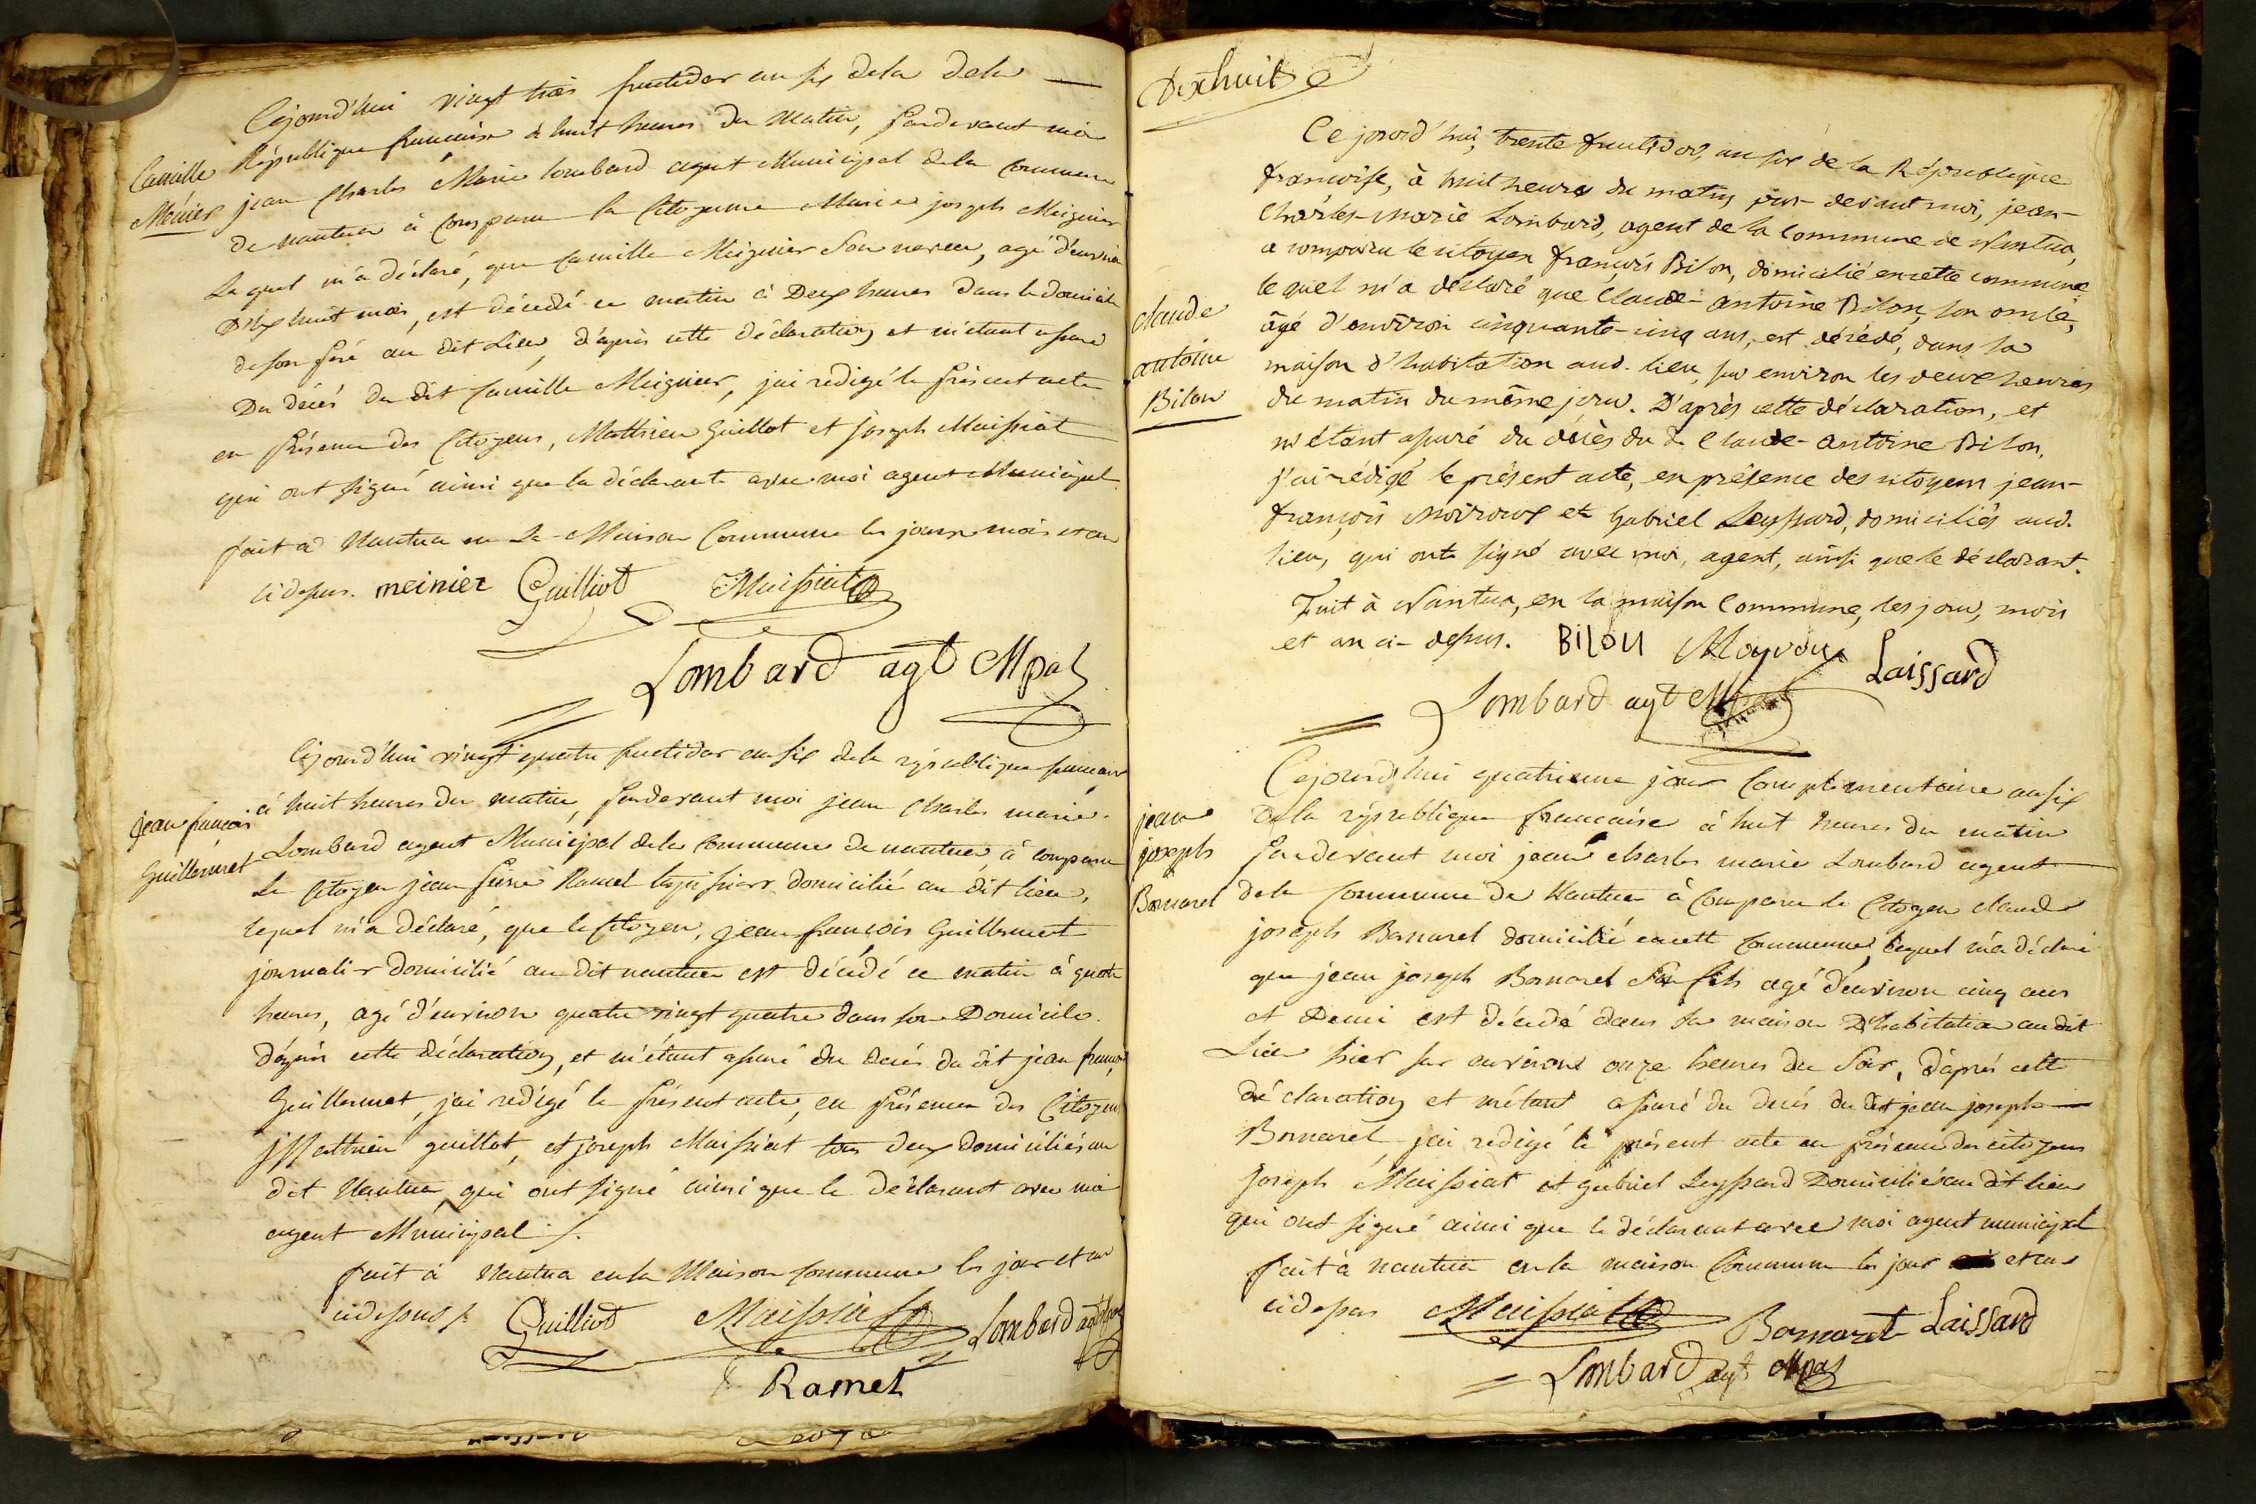 Cejourd'hui vingt trois fructidor an six dela dela
Camille
Ménier
République francaise à huit heures du Matin, pardevant moi
jean Charles Marie lombard agent Municipal dela Commune
de nantua à Comparu la Citoyenne Marie joseph Meignier
Laquel m'a déclaré, que Camille Meignier Son neveu, agé d'environ
Dix huit mois, est décédé ce matin à Deux heures dans le domicile
de son père au dit Lieu, d'après cette déclaration et m'étant assuré
Du décès du dit Camille Meignier, jai redigé le présent acte
en présence des Citoyens, Mathieu Guillot et joseph Maissiat
qui ont signé ainsi que la déclarante avec moi agent Municipal.
fait à Nantua en La Maison Commune les jour mois et an
cidessus. meinier Guilliot Maissiat
Lombard agt Mpal
Cejourd'hui vingt quatre fructidor an six dela république francaise
jean francois
Guillermet
à huit heures du matin, pardevant moi jean Charles marie
Lombard agent Municipal dela Commune de nantua, à comparu
Le Citoyen jean pierre Ramel domicilié au dit lieu,
lequel m'a déclaré, que le Citoyen, jean françois Guillermet
journalier domicilié au dit nantua est décédé ce matin à quatre
heures, agé d'environ quatre vingt quatre dans son Domicile.
d'après cette déclaration, et m'étant assuré du décès du dit jean françois
Guillermet, jai redigé le présent acte, en présence des Citoyens
Matthieu guillot, et joseph Maissiat tous deux domiciliés au
dit Nantua, qui ont signé ainsi que le déclarant avec moi
agent Municipal /.
fait à Nantua en la Maison Commune les jour et an
cidessus /. Guilliot Maissiat Lombard agt Mpal
Ramel
Dixhuit
Ce jourd'hui, trente fructidor, an six de la République
françoise, à huit heures du matin par-devant moi, jean-
Charles-Marie Lombard, agent de la Commune de Nantua,
a comparu le citoyen françois Bilon, domicilié en cette commune,
lequel m'a déclaré que Claude-Antoine Bilon, son oncle,
claude
antoine
Bilon
âgé d'environ cinquante-cinq ans, est décédé, dans sa
maison d'habitation aud. lieu, sur environ les deux heures
du matin du même jour. D'après cette déclaration, et
m'étant assuré du décès du d. Claude-Antoine Bilon,
j'ai rédigé le présent acte, en présence des citoyens jean-
françois Moiroux et Gabriel Leyssard, domiciliés aud.
lieu, qui ont signé avec moi, agent, ainsi que le déclarant.
Fait à Nantua, en la maison Commune, les jour, mois
et an ci-dessus. BiloN Moyroux Laissard
Lombard agt Mpal
Cejourdhui quatrieme jour Complémentaire an six
jean
joseph
Bornarel
dela république francaise à huit heures du matin
pardevant moi jean charles marie Lombard agent
dela Commune de Nantua à Comparu le Citoyen claude
joseph Bornarel domicilié en cette Commune, lequel m'a déclaré
que jean joseph Bornarel Son fils agé d'environ cinq ans
et Demi est décédé dans sa maison D'habitation au dit
Lieu hier sur environs onze heures du Soir, d'après cette
déclaration et m'étant assuré du décès du dit jean joseph
Bornarel, jai redigé le présent acte en présence des citoyens
Joseph Maissiat et gabriel Leyssard Domiciliés au dit lieu
qui ont signé ainsi que le déclarant avec moi agent municipal
fait à nantua en la maison Commune les jour et an
cidessus Maissiat Bornarel Laissard
Lombard agt Mpal